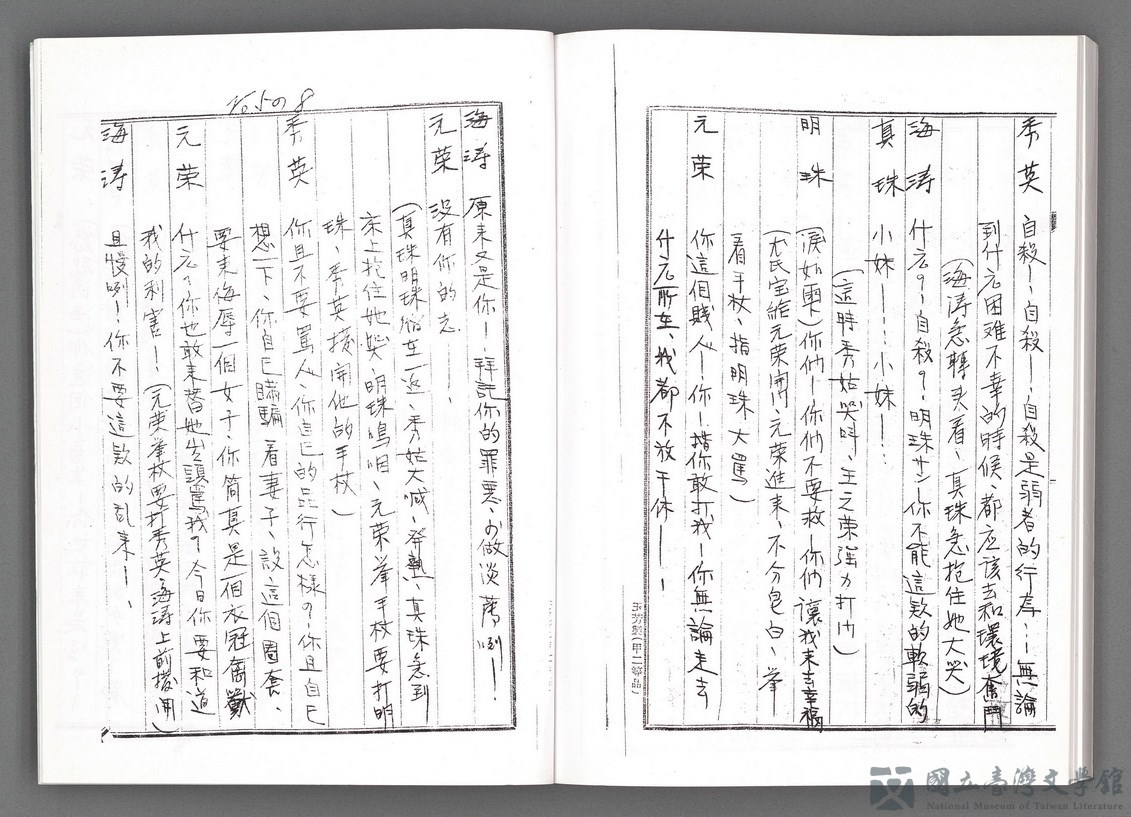 秀英 自殺！自殺！自殺是弱者的行為！無論
到什么困难不幸的時候、都应該去和環境奮鬥
(海涛急轉头看、真珠急抱住她大哭)
海涛 什么？自殺？明珠サン你不能這款的軟弱的
真珠 小妹！……小妹……
(這時秀姑哭叫、王之荣强力打门)
明珠 (淚如雨)你們！你們不要救！你們讓我来去幸福
给元荣開门、元荣進来、不分皂白、举
看手杖、指明珠大罵)
元荣 你這個賤人！你！措你敢打我！你無論走去
什么所在、我都不放干休——！
海涛 原来又是你！拜託你的罪惡、少做淡薄咧！
元荣 没有你的志……
(真珠明珠 在一返、秀姑大喊、發熱、真珠急到
床上抱住她哭、明珠鳴咽、元荣举手杖要打明
珠、秀英接開他的手杖)
秀英 你且不要罵人、你自己的品行怎樣？你且自己
想一下、你自己瞞騙着妻子、設這個圈套、
要来侮辱一個女子、你简真是一個衣冠禽獸
元荣 什么？你也敢来替她出頭罵我？今日你要知道
我的利害！(元荣举杖要打秀英、海涛上前接開)
海涛 且慢咧！你不要這款的乱来！
玉芳製(甲二等品)
國立臺灣文學館
National Museum of Taiwan Literature